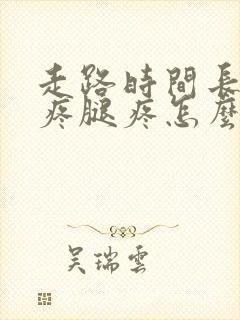 走路時間長
疼腿疼怎麼
吳瑞雲